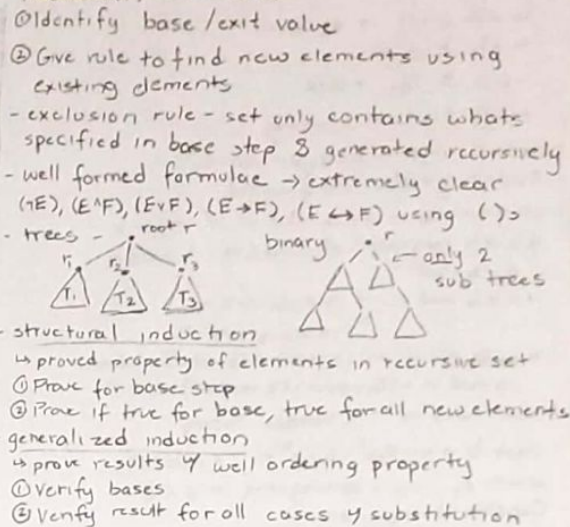 ①Identify base/exit value
② Give rule to find new elements using
existing elements
- exclusion rule - set only contains whats
specified in base step & generated recursively
- well formed formulae → extremely clear
(¬E), (E∧F), (E∨F), (E→F), (E↔F) using ()s
- trees - root r
r₁ r₂ r₃
T₁ T₂ T₃
binary r
only 2
sub trees
- structural induction
↳ proved property of elements in recursive set
① Prove for base step
② Prove if true for base, true for all new elements
generalized induction
↳ prove results w/ well ordering property
① Verify bases
② Verify result for all cases w/ substitution